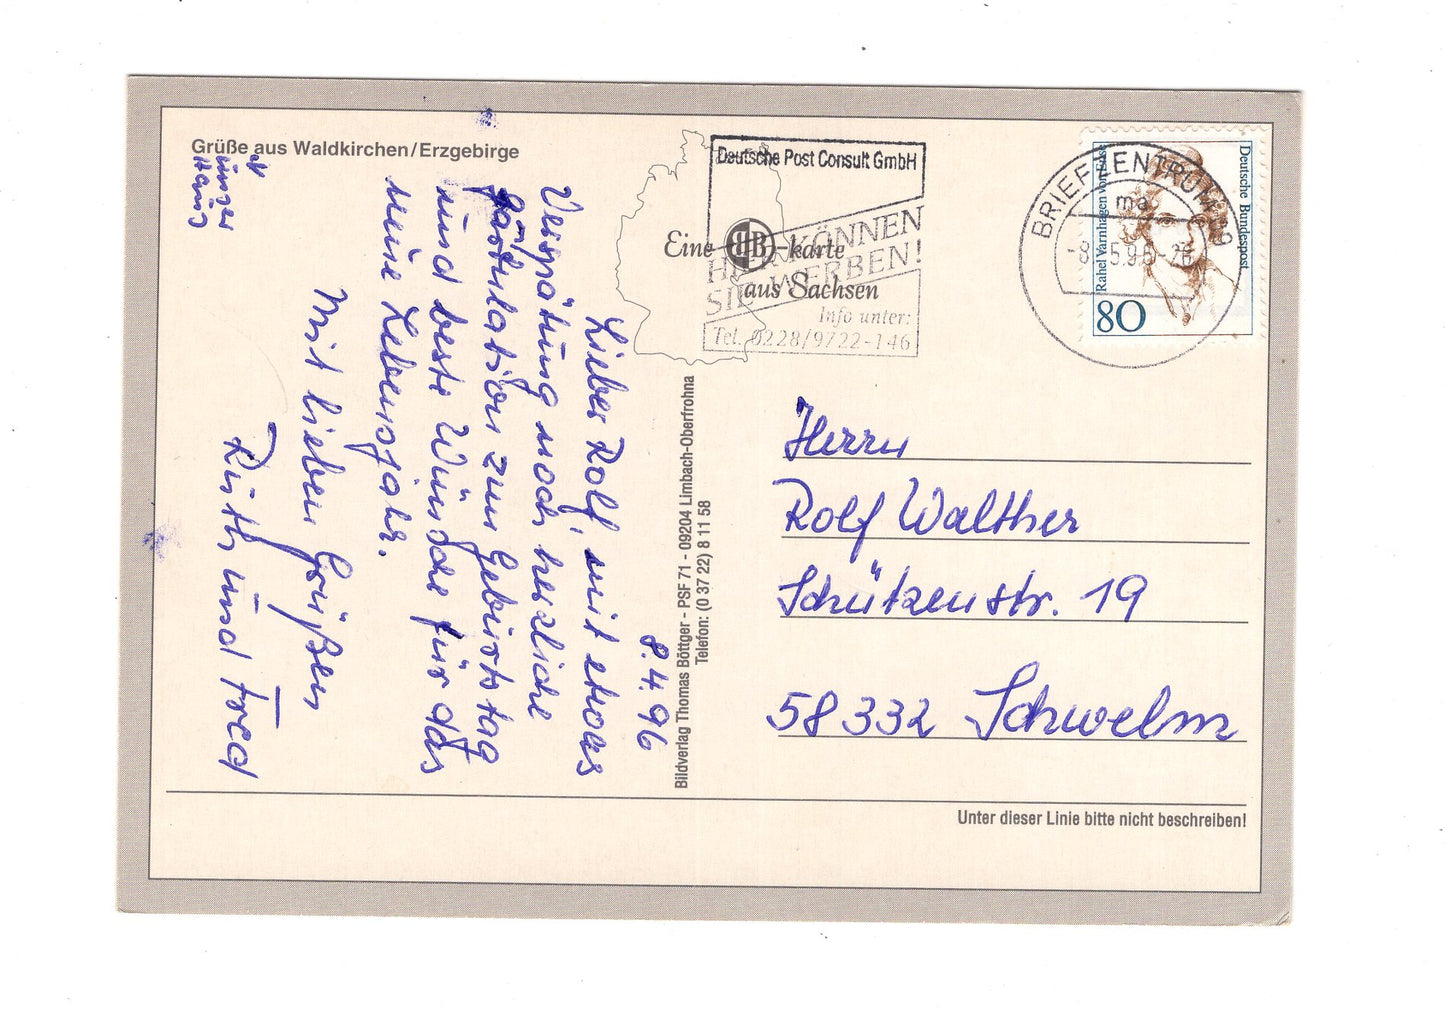 Grüße aus Waldkirchen/Erzgebirge
unser
Haus
8.4.96
Lieber Rolf, mit etwas
Verspätung noch herzliche
Gratulation zum Geburtstag
und beste Wünsche für das
neue Lebensjahr.
Mit lieben Grüßen
Ruth und Fred
Bildverlag Thomas Böttger - PSF 71 - 09204 Limbach-Oberfrohna
Telefon: (0 37 22) 8 11 58
Eine BB-karte
aus Sachsen
Deutsche Post Consult GmbH
HIER KÖNNEN
SIE WERBEN!
Info unter:
Tel. 0228/9722-146
BRIEFZENTRUM
ma
Rahel Varnhagen von Ense
Deutsche Bundespost
80
Herrn
Rolf Walther
Schützenstr. 19
58332 Schwelm
Unter dieser Linie bitte nicht beschreiben!